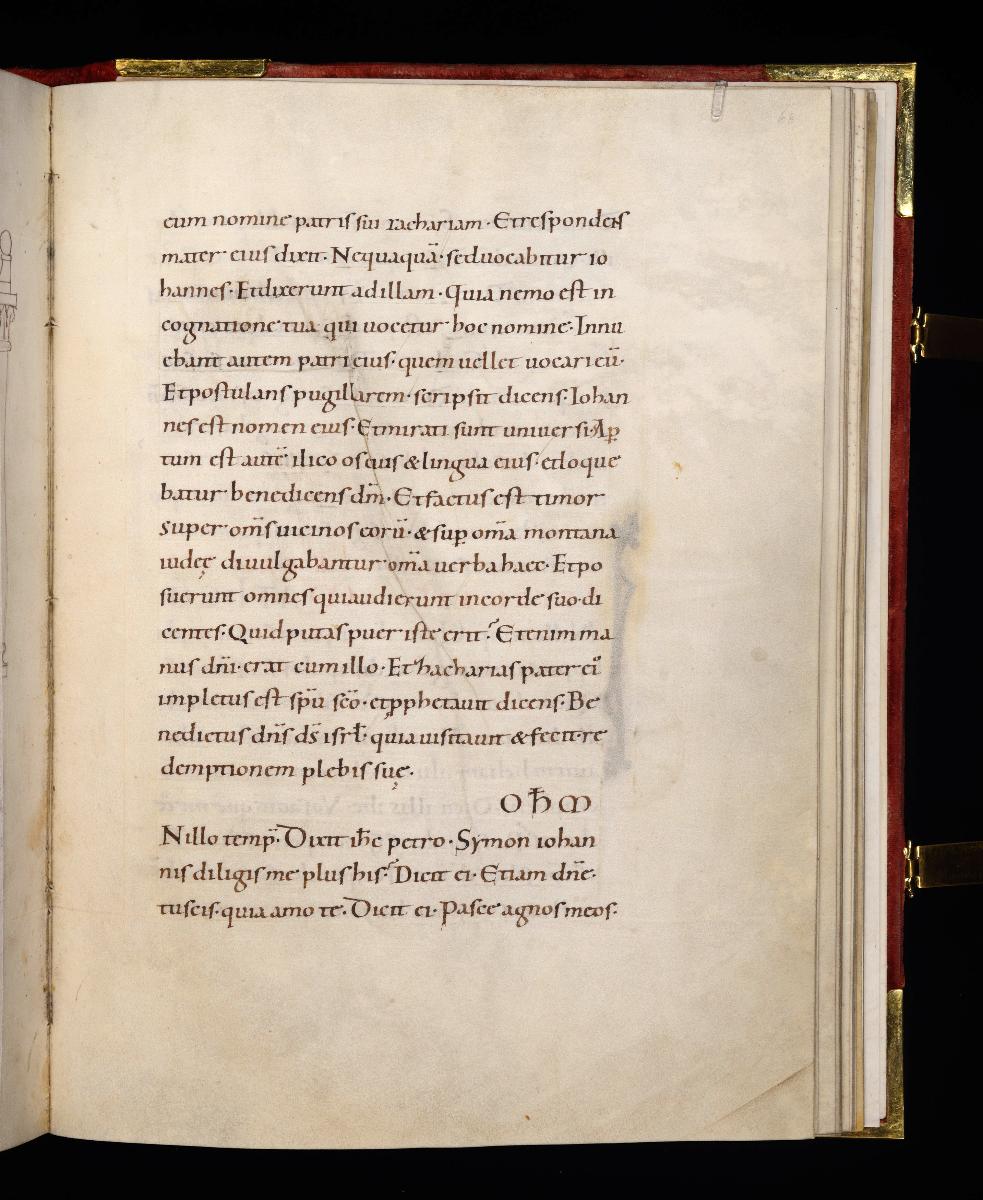 68
eum nomine patris sui zachariam · Et respondens
mater eius dixit · Nequaquā · sed uocabitur io
hannes · Et dixerunt ad illam · Quia nemo est in
cognatione tua qui uocetur hoc nomine · Innu
ebant autem patri eius · quem uellet uocari eū ·
Et postulans pugillarem · scripsit dicens · Iohan
nes est nomen eius · Et mirati sunt uniuersi · Ap̲
tum est autē ilico os eius & lingua eius · et loque
batur benedicens dm̄ · Et factus est timor
super om̄s uicinos eorū · & sup̲ om̄a montana
iudęę diuulgabantur om̄a uerba haec · Et po
suerunt omnes qui audierunt in corde suo · di
centes · Quid putas puer iste erit ? Etenim ma
nus dn̄i · erat cum illo · Et zhacharias pater ei᷒
impletus est sp̄u sc̄o · et pphetauit dicens · Be
nedictus dn̄s ds̄ isrl̄ · quia uisitauit & fecit · re
demptionem plebis suę ·
O ħ M
N illo temp̄ · Dixit ih̄c petro · Symon iohan
nis diligis me plus his ? Dicit ei · Etiam dn̄e ·
tu scis · quia amo te · Dicit ei · Pasce agnos meos ·